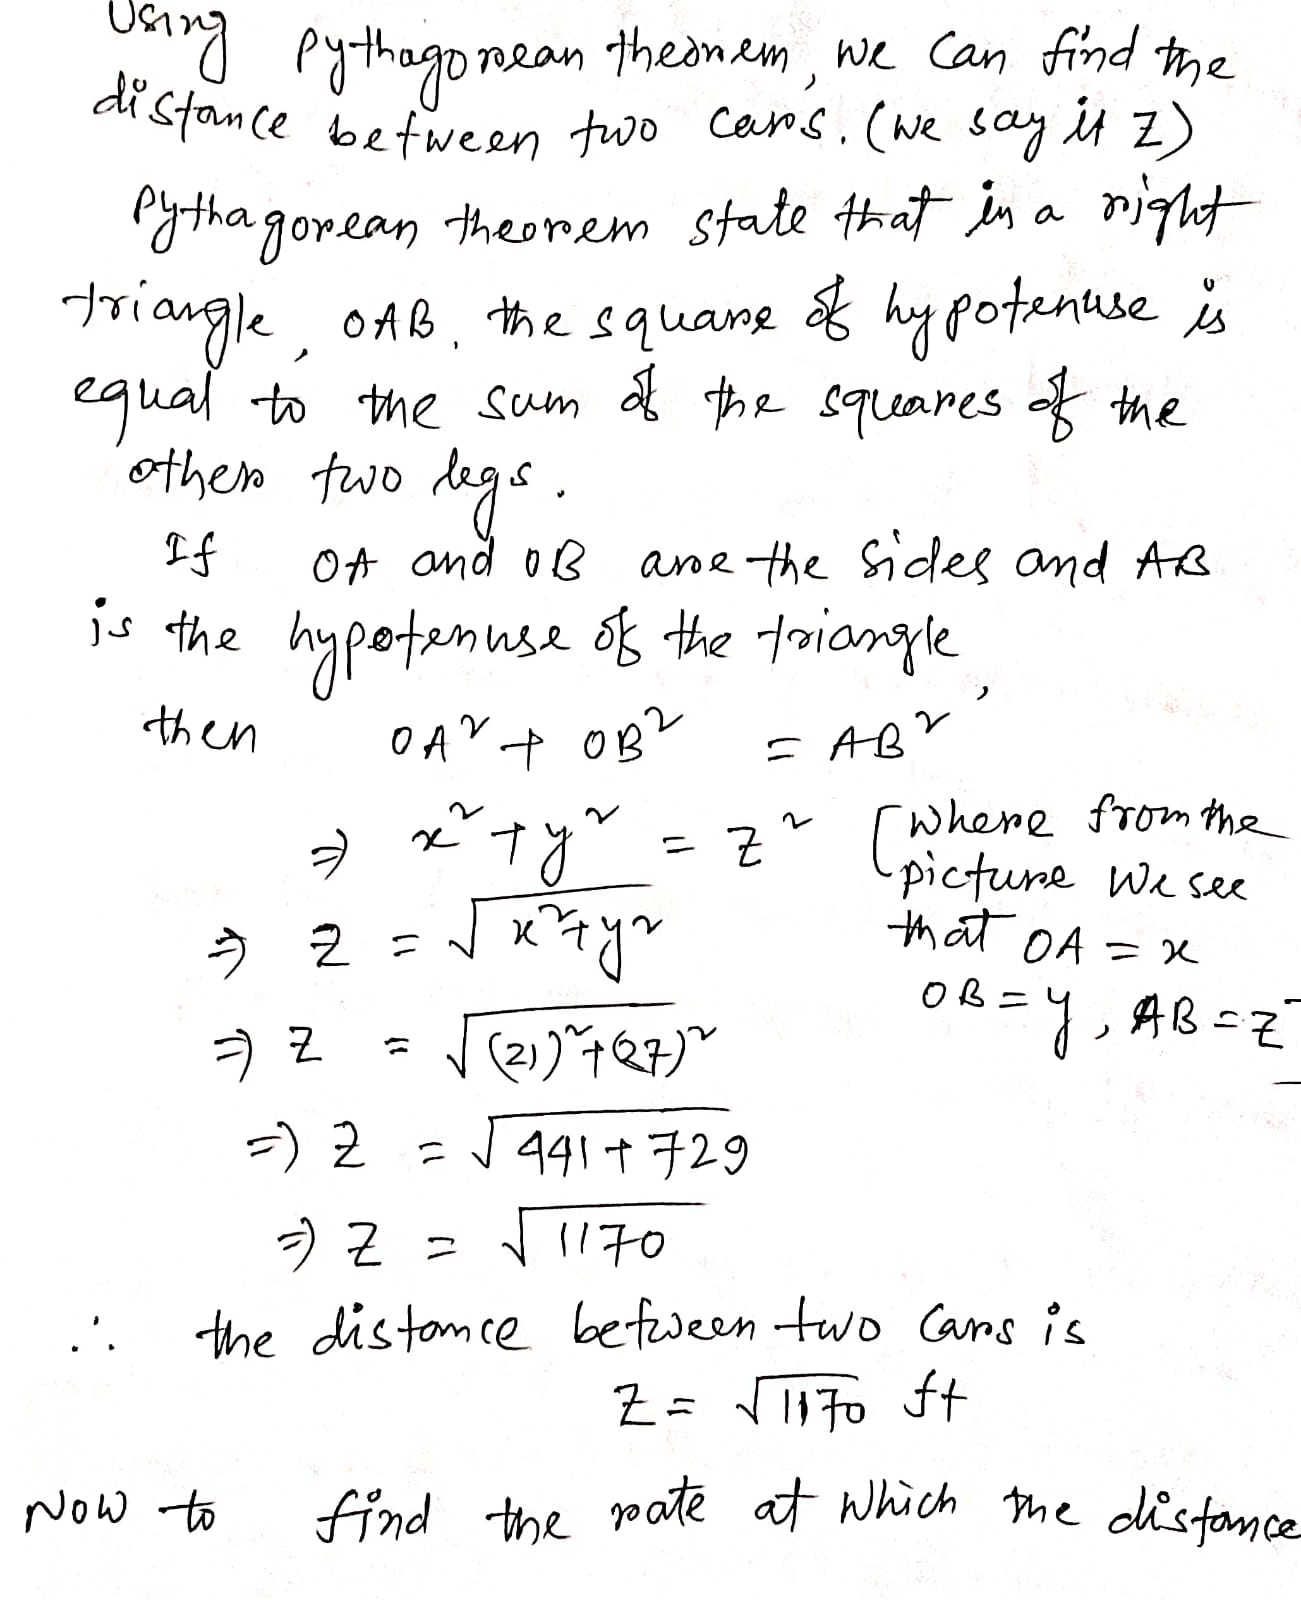 Using Pythagorean theorem, we can find the
distance between two cars. (we say it z)
Pythagorean theorem state that in a right
triangle, OAB, the square of hypotenuse is
equal to the sum of the squares of the
other two legs.
If OA and OB are the sides and AB
is the hypotenuse of the triangle,
then OA² + OB² = AB²
⇒ x² + y² = z² [where from the
picture we see
⇒ z = √(x²+y²) that OA = x
OB = y, AB = z]
⇒ z = √((21)²+(27)²)
⇒ z = √(441+729)
⇒ z = √1170
∴ the distance between two cars is
z = √1170 ft
Now to find the rate at which the distance